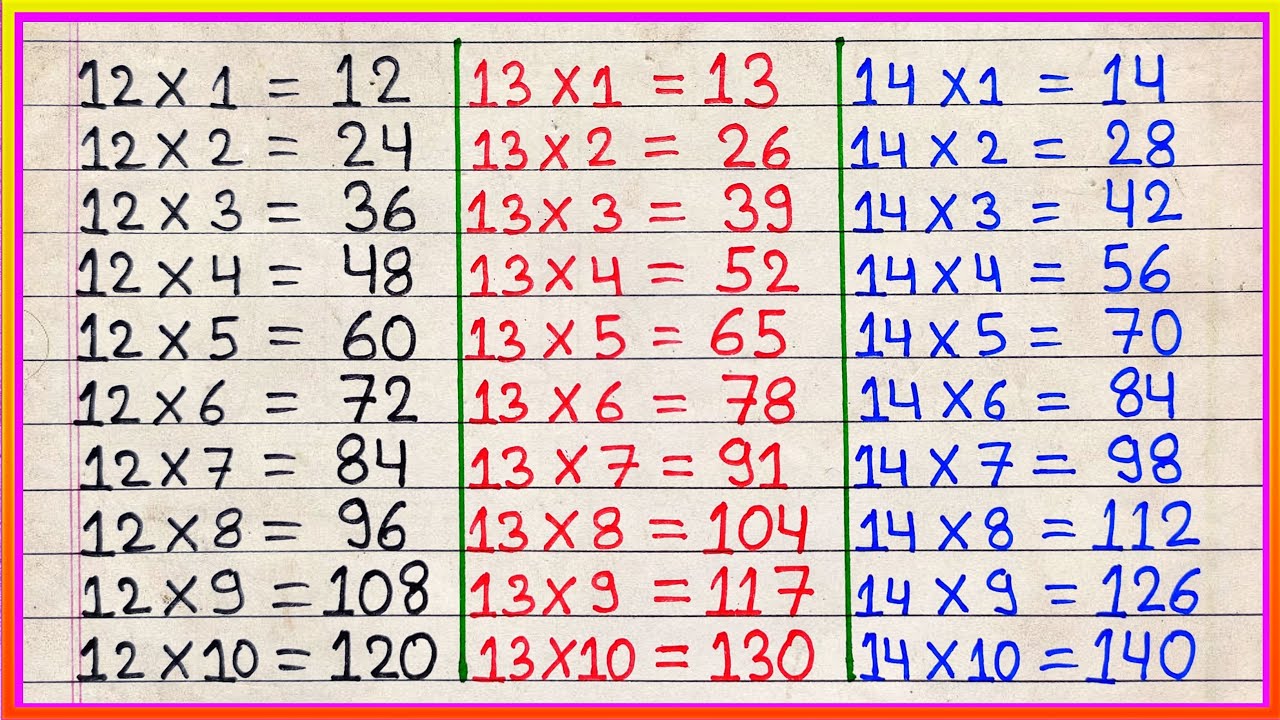 12 x 1 = 12
12 x 2 = 24
12 x 3 = 36
12 x 4 = 48
12 x 5 = 60
12 x 6 = 72
12 x 7 = 84
12 x 8 = 96
12 x 9 = 108
12 x 10 = 120
13 x 1 = 13
13 x 2 = 26
13 x 3 = 39
13 x 4 = 52
13 x 5 = 65
13 x 6 = 78
13 x 7 = 91
13 x 8 = 104
13 x 9 = 117
13 x 10 = 130
14 x 1 = 14
14 x 2 = 28
14 x 3 = 42
14 x 4 = 56
14 x 5 = 70
14 x 6 = 84
14 x 7 = 98
14 x 8 = 112
14 x 9 = 126
14 x 10 = 140